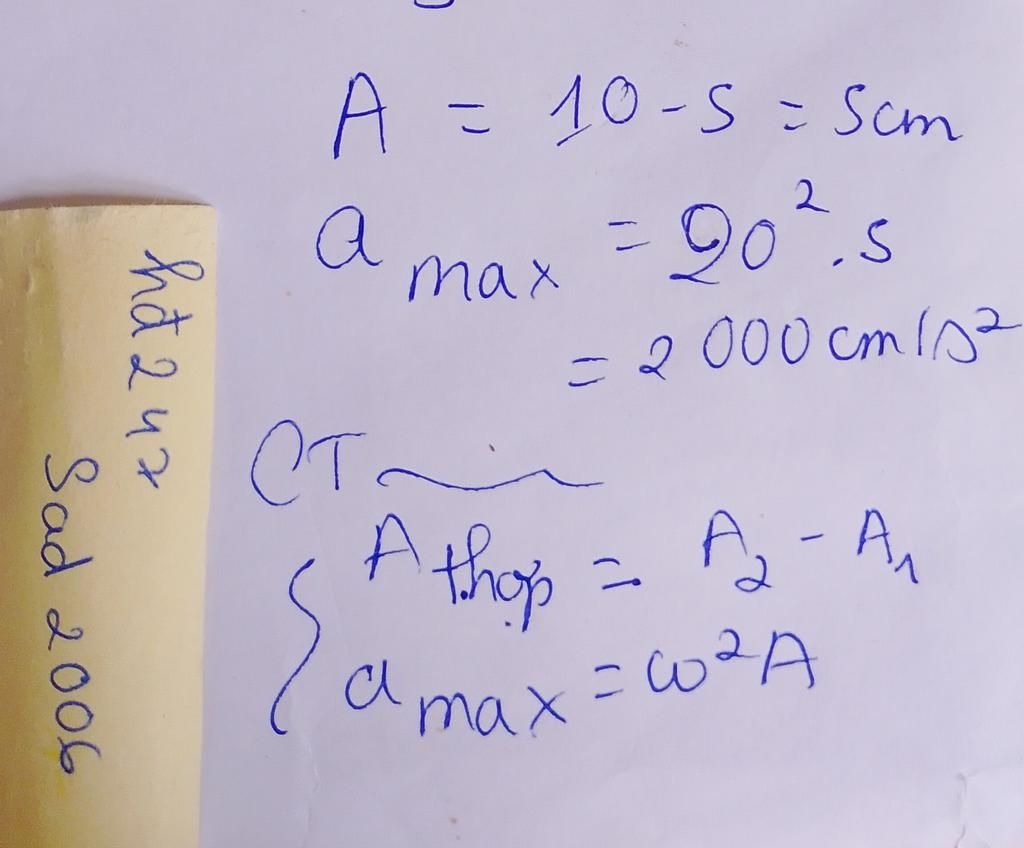 A = 10 - 5 = 5cm
a max = 20² . 5
= 2000 cm/s²
CT
A t.hợp = A₂ - A₁
a max = ω²A
hđ 247
Sad 2006